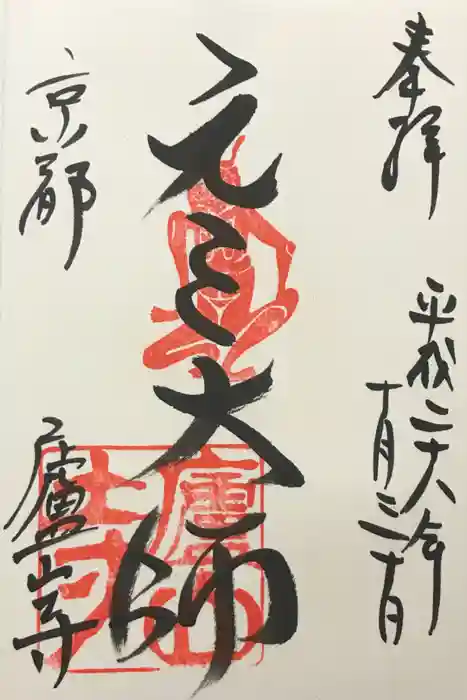 奉拝
平成二十八年
十月三十日
元三大師
京都
廬山寺